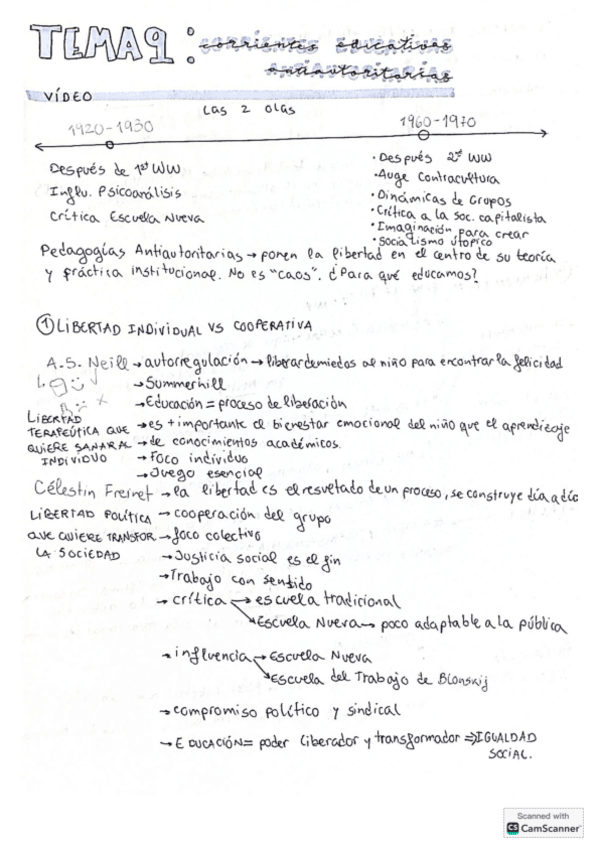 TEMA 9: corrientes educativas
antiautoritarias
VÍDEO
Las 2 olas
1920-1930
1960-1970
Después de 1ª WW
Influ. Psicoanálisis
Crítica Escuela Nueva
· Después 2ª WW
· Auge Contracultura
· Dinámicas de Grupos
· Crítica a la soc. capitalista
· Imaginación para crear
· Socialismo utópico
Pedagogías Antiautoritarias → ponen la libertad en el centro de su teoría
y práctica institucional. No es "caos". ¿Para qué educamos?
① LIBERTAD INDIVIDUAL VS COOPERATIVA
A.S. Neill → autorregulación → liberar de miedos al niño para encontrar la felicidad
→ Summerhill
→ Educación = proceso de liberación
LIBERTAD
TERAPEÚTICA QUE
QUIERE SANAR AL
INDIVIDUO
→ es + importante el bienestar emocional del niño que el aprendizaje
→ de conocimientos académicos.
→ Foco individuo
→ Juego esencial
Célestin Freinet → la libertad es el resultado de un proceso, se construye día a día
LIBERTAD POLÍTICA
QUE QUIERE TRANSFOR
LA SOCIEDAD
→ cooperación del grupo
→ foco colectivo
→ Justicia social es el fin
→ Trabajo con sentido
→ crítica → escuela tradicional
→ Escuela Nueva → poco adaptable a la pública
→ influencia → Escuela Nueva
→ Escuela del Trabajo de Blonskij
→ compromiso político y sindical
→ EDUCACIÓN = poder liberador y transformador ⇒ IGUALDAD
SOCIAL.
Scanned with
CS CamScanner